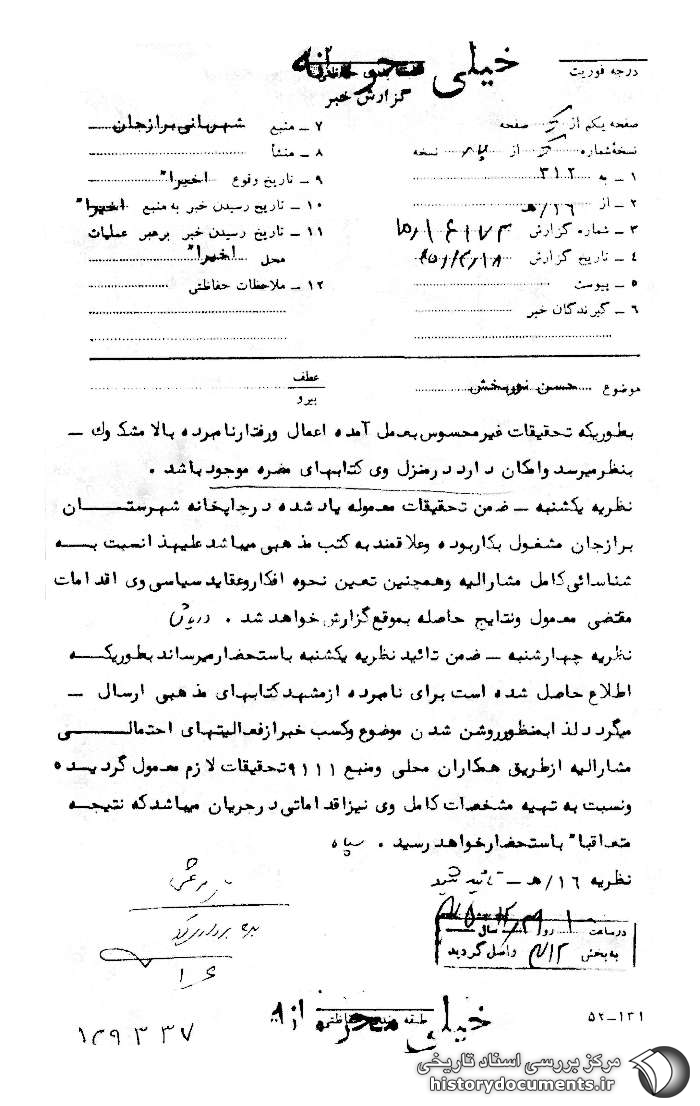 خیلی محرمانه
درجه فوریت
گزارش خبر
صفحه یکم از صفحه
نسخه شماره از نسخه
۱ ــ به ۳۱۲
۲ ــ از ۱۶/هـ
۳ ــ شماره گزارش
۴ ــ تاریخ گزارش
۵ ــ پیوست
۶ ــ گیرندگان خبر
۷ ــ منبع شهربانی برازجان
۸ ــ منشأ
۹ ــ تاریخ وقوع اخیرا"
۱۰ ــ تاریخ رسیدن خبر به منبع اخیرا"
۱۱ ــ تاریخ رسیدن خبر برهبر عملیات
محل اخیرا"
۱۲ ــ ملاحظات حفاظتی
موضوع حسن نوربخش
عطف
پیرو
بطوریکه تحقیقات غیرمحسوس بعمل آمده اعمال ورفتارنامبرده بالا مشکوک ــ
بنظرمیرسد وامکان دارد درمنزل وی کتابهای مضره موجود باشد .
نظریه یکشنبه ــ ضمن تحقیقات معموله یاد شده درچاپخانه شهرستان
برازجان مشغول بکاربوده وعلاقمند به کتب مذهبی میباشد علیهذا نسبت به
شناسائی کامل مشارالیه وهمچنین تعین نحوه افکاروعقاید سیاسی وی اقدامات
مقتضی معمول ونتایج حاصله بموقع گزارش خواهد شد .
نظریه چهارشنبه ــ ضمن تائید نظریه یکشنبه باستحضارمیرساند بطوریکه
اطلاع حاصل شده است برای نامبرده ازمشهد کتابهای مذهبی ارسال ــ
میگردد لذا بمنظورروشن شدن موضوع وکسب خبرازفعالیتهای احتمالی
مشارالیه ازطریق همکاران محلی ومنبع ۹۱۱۱ تحقیقات لازم معمول گردیده
ونسبت به تهیه مشخصات کامل وی نیزاقداماتی درجریان میباشد که نتیجه
متعاقبا" باستحضارخواهد رسید .
نظریه ۱۶/هـ ــ تائید میشود
درساعت روز سال
به بخش ۳۱۲ واصل گردید
۵۲-۱۳۱
خیلی محرمانه
مرکز بررسی اسناد تاریخی
historydocuments.ir